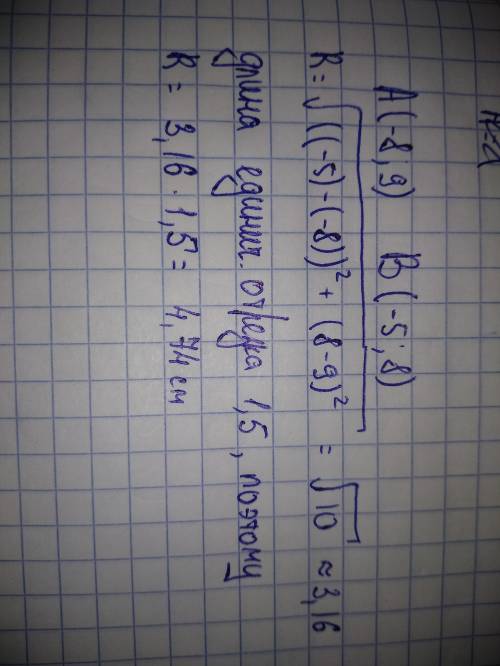 A(-8,9) B(-5;8)
R = √((-5)-(-8))² + (8-9)² = √10 ≈ 3,16
длина единич. отрезка 1,5, поэтому
R = 3,16 · 1,5 = 4,74 см